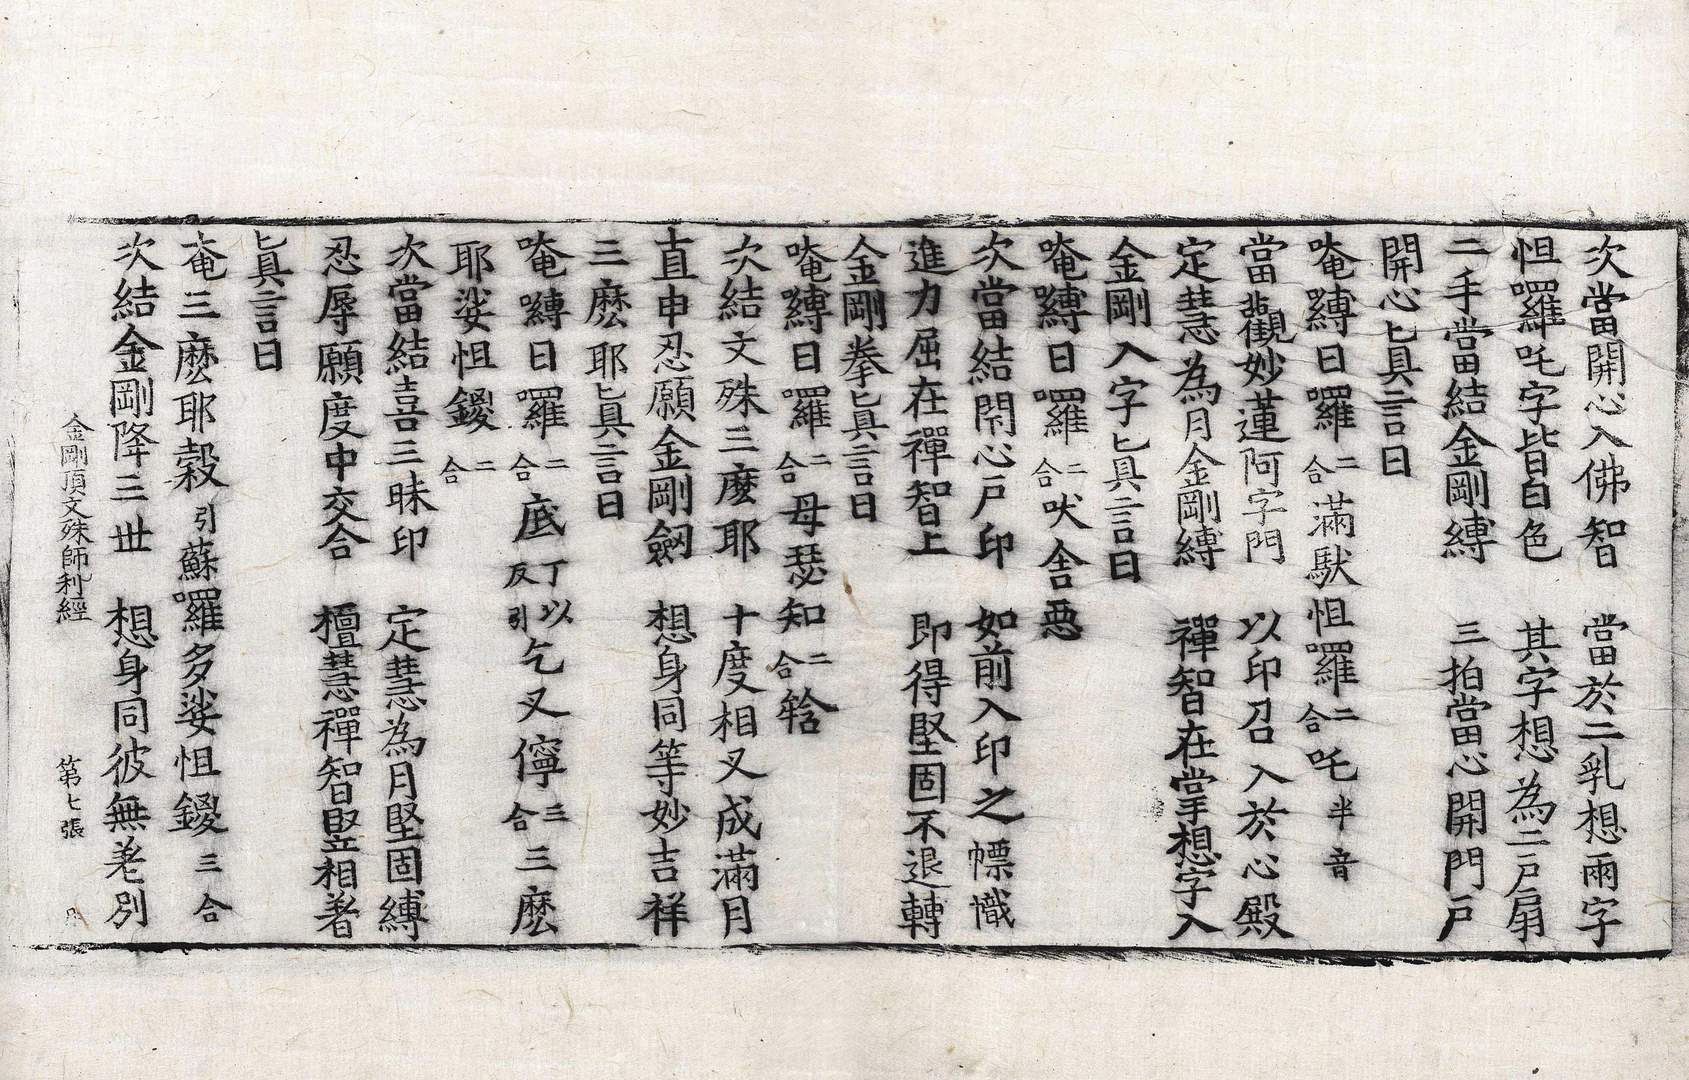 次當開心入佛智　當於二乳想兩字
怛囉吒字皆白色　其字想為二戶扇
二手當結金剛縛　三拍當心開門戶
開心真言曰
唵嚩日囉二合滿馱怛囉二合吒半音
當觀妙蓮阿字門　以印召入於心殿
定慧為月金剛縛　禪智在掌想字入
金剛入字真言曰
唵嚩日囉二合吠舍惡
次當結閇心戶印　如前入印之幖幟
進力屈在禪智上　即得堅固不退轉
金剛拳真言曰
唵嚩日囉二合母瑟知二合𤚥
次結文殊三麼耶　十度相叉成滿月
直申忍願金剛劒　想身同等妙吉祥
三麼耶真言曰
唵嚩日囉二合底丁以反引乞叉儜三合三麼
耶娑怛鑁二合
次當結喜三昧印　定慧為月堅固縛
忍辱願度中交合　檀慧禪智豎相著
真言曰
唵三麼耶穀引蘇囉多娑怛鑁三合
次結金剛降三世　想身同彼無差別
金剛頂文殊師利經　第七張